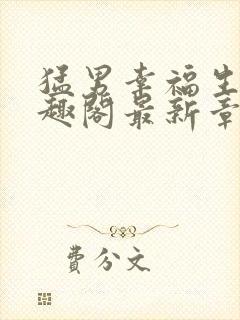 猛男幸福生
趣阁最新章
费分文